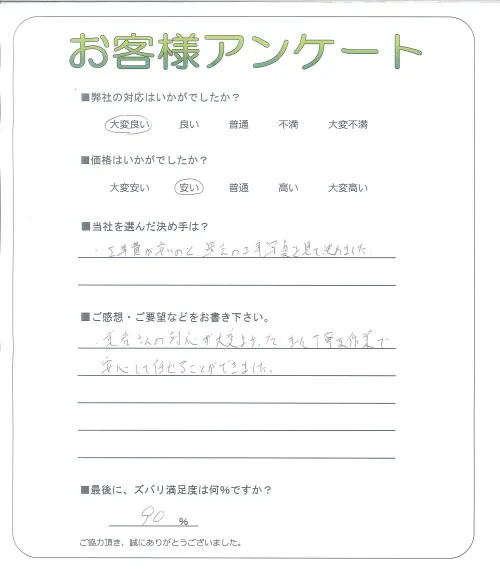 お客様アンケート
■弊社の対応はいかがでしたか？
大変良い 良い 普通 不満 大変不満
■価格はいかがでしたか？
大変安い 安い 普通 高い 大変高い
■当社を選んだ決め手は？
・工事費が安いのと、過去の工事写真を見て決めました
■ご感想・ご要望などをお書き下さい。
業者さんの対応が大変よかった また丁寧な作業で
安心して任せることができました。
■最後に、ズバリ満足度は何％ですか？
90 %
ご協力頂き、誠にありがとうございました。